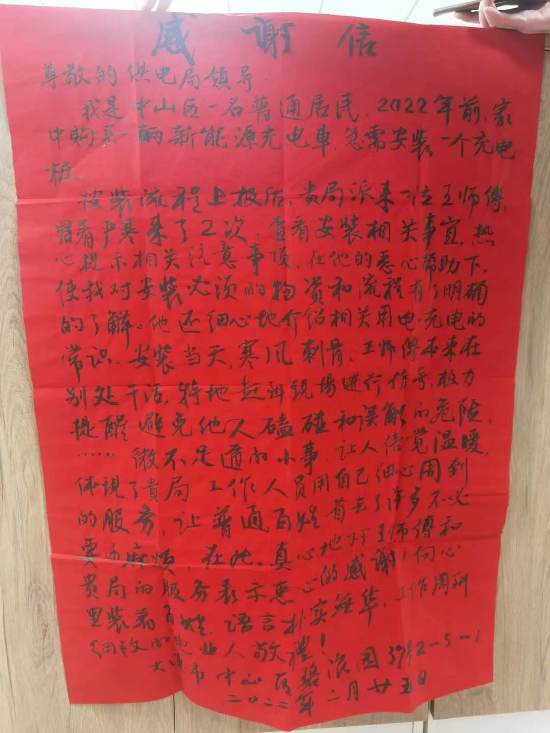 感谢信
尊敬的供电局领导
我是中山区一名普通居民，2022年前，家
中购买一辆新能源充电车，急需安装一个充电
桩。
按装流程上报后，贵局派来一位王师傅，
冒着严寒来了2次，查看安装相关事宜，热
心提示相关注意事项，在他的悉心帮助下，
使我对安装必须的物资和流程有了明确
的了解。他还细心地介绍相关用电、充电的
常识。安装当天，寒风刺骨，王师傅本来在
别处干活，特地赶到现场进行指导，极力
提醒避免他人磕碰和误触的危险，
……微不足道的小事，让人倍觉温暖，
体现了贵局工作人员用自己细心周到
的服务，让普通百姓省去了许多不必
要的麻烦，在此，真心地对王师傅和
贵局的服务表示衷心的感谢！向心
里装着百姓，语言朴实，工作周到
细致的电业人敬礼！
大连市中山区碧流园
二〇二二年二月廿五日